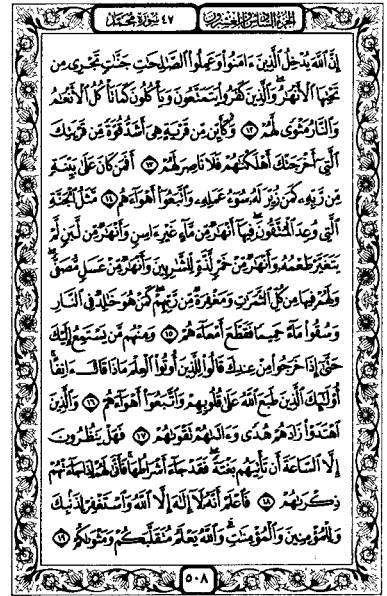 الجزء السادس والعشرون
٤٧ سورة محمد
إِنَّ ٱللَّهَ يُدْخِلُ ٱلَّذِينَ ءَامَنُوا۟ وَعَمِلُوا۟ ٱلصَّٰلِحَٰتِ جَنَّٰتٍ تَجْرِى مِن
تَحْتِهَا ٱلْأَنْهَٰرُ ۖ وَٱلَّذِينَ كَفَرُوا۟ يَتَمَتَّعُونَ وَيَأْكُلُونَ كَمَا تَأْكُلُ ٱلْأَنْعَٰمُ
وَٱلنَّارُ مَثْوًى لَّهُمْ ١٢ وَكَأَيِّن مِّن قَرْيَةٍ هِىَ أَشَدُّ قُوَّةً مِّن قَرْيَتِكَ
ٱلَّتِىٓ أَخْرَجَتْكَ أَهْلَكْنَٰهُمْ فَلَا نَاصِرَ لَهُمْ ١٣ أَفَمَن كَانَ عَلَىٰ بَيِّنَةٍ
مِّن رَّبِّهِۦ كَمَن زُيِّنَ لَهُۥ سُوٓءُ عَمَلِهِۦ وَٱتَّبَعُوٓا۟ أَهْوَآءَهُم ١٤ مَّثَلُ ٱلْجَنَّةِ
ٱلَّتِى وُعِدَ ٱلْمُتَّقُونَ ۖ فِيهَآ أَنْهَٰرٌ مِّن مَّآءٍ غَيْرِ ءَاسِنٍ وَأَنْهَٰرٌ مِّن لَّبَنٍ لَّمْ
يَتَغَيَّرْ طَعْمُهُۥ وَأَنْهَٰرٌ مِّنْ خَمْرٍ لَّذَّةٍ لِّلشَّٰرِبِينَ وَأَنْهَٰرٌ مِّنْ عَسَلٍ مُّصَفًّى ۖ
وَلَهُمْ فِيهَا مِن كُلِّ ٱلثَّمَرَٰتِ وَمَغْفِرَةٌ مِّن رَّبِّهِمْ ۖ كَمَنْ هُوَ خَٰلِدٌ فِى ٱلنَّارِ
وَسُقُوا۟ مَآءً حَمِيمًا فَقَطَّعَ أَمْعَآءَهُمْ ١٥ وَمِنْهُم مَّن يَسْتَمِعُ إِلَيْكَ
حَتَّىٰٓ إِذَا خَرَجُوا۟ مِنْ عِندِكَ قَالُوا۟ لِلَّذِينَ أُوتُوا۟ ٱلْعِلْمَ مَاذَا قَالَ ءَانِفًا ۚ
أُو۟لَٰٓئِكَ ٱلَّذِينَ طَبَعَ ٱللَّهُ عَلَىٰ قُلُوبِهِمْ وَٱتَّبَعُوٓا۟ أَهْوَآءَهُمْ ١٦ وَٱلَّذِينَ
ٱهْتَدَوْا۟ زَادَهُمْ هُدًى وَءَاتَىٰهُمْ تَقْوَىٰهُمْ ١٧ فَهَلْ يَنظُرُونَ
إِلَّا ٱلسَّاعَةَ أَن تَأْتِيَهُم بَغْتَةً ۖ فَقَدْ جَآءَ أَشْرَاطُهَا ۚ فَأَنَّىٰ لَهُمْ إِذَا جَآءَتْهُمْ
ذِكْرَىٰهُمْ ١٨ فَٱعْلَمْ أَنَّهُۥ لَآ إِلَٰهَ إِلَّا ٱللَّهُ وَٱسْتَغْفِرْ لِذَنۢبِكَ
وَلِلْمُؤْمِنِينَ وَٱلْمُؤْمِنَٰتِ ۗ وَٱللَّهُ يَعْلَمُ مُتَقَلَّبَكُمْ وَمَثْوَىٰكُمْ ١٩
٥٠٨